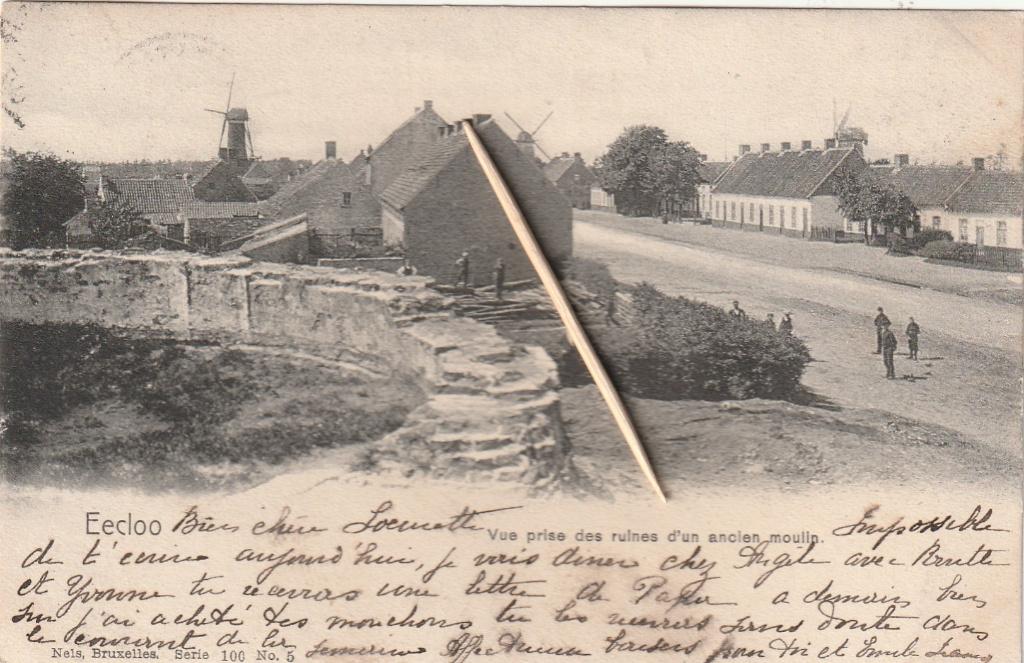 Eecloo Bien chère Vue prise des ruines d'un ancien moulin. Impossible
de t'écrire aujourd'hui, je vais diner chez Angèle avec
et Yvonne tu recevras une lettre de Papa a demain bien
sur j'ai acheté tes mouchons tu les recevras sans doute dans
le courant de la semaine Affectueux baisers pour toi et toute
Nels, Bruxelles. Serie 100 No. 5